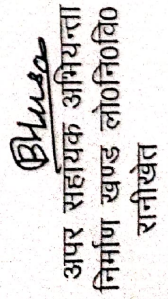 अपर सहायक अभियन्ता
निर्माण खण्ड लो०नि०वि०
रानीखेत